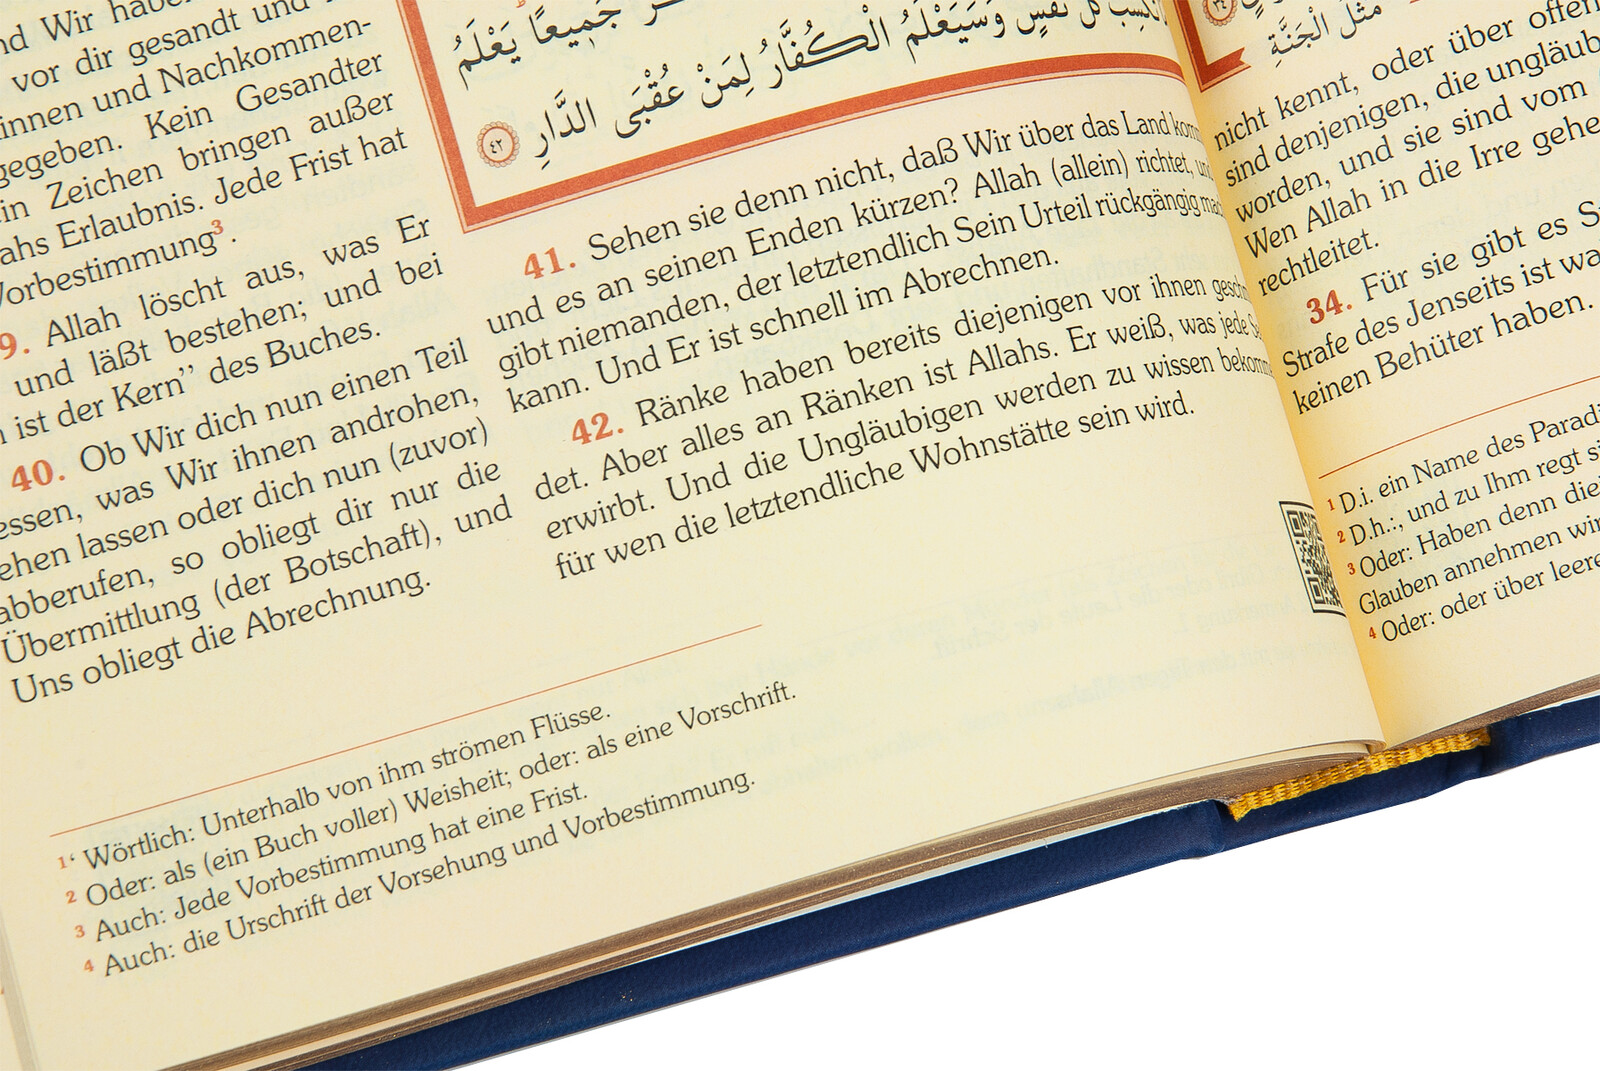 nd Wir habe
vor dir gesandt und
innen und Nachkommen-
gegeben. Kein Gesandter
in Zeichen bringen außer
ahs Erlaubnis. Jede Frist hat
Vorbestimmung³.
9. Allah löscht aus, was Er
und läßt bestehen; und bei
ist der Kern” des Buches.
40. Ob Wir dich nun einen Teil
essen, was Wir ihnen androhen,
ehen lassen oder dich nun (zuvor)
abberufen, so obliegt dir nur die
Übermittlung (der Botschaft), und
Uns obliegt die Abrechnung.
جَمِيعًا يَعْلَمُ
تَكْسِبُ كُلُّ نَفْسٍ وَسَيَعْلَمُ الْكُفَّارُ لِمَنْ عُقْبَى الدَّارِ ٤٢
41. Sehen sie denn nicht, daß Wir über das Land kom
und es an seinen Enden kürzen? Allah (allein) richtet, un
gibt niemanden, der letztendlich Sein Urteil rückgängig mac
kann. Und Er ist schnell im Abrechnen.
42. Ränke haben bereits diejenigen vor ihnen geschm
det. Aber alles an Ränken ist Allahs. Er weiß, was jede Se
erwirbt. Und die Ungläubigen werden zu wissen bekomm
für wen die letztendliche Wohnstätte sein wird.
1‘ Wörtlich: Unterhalb von ihm strömen Flüsse.
2 Oder: als (ein Buch voller) Weisheit; oder: als eine Vorschrift.
3 Auch: Jede Vorbestimmung hat eine Frist.
4 Auch: die Urschrift der Vorsehung und Vorbestimmung.
٣٤
مَثَلُ الْجَنَّةِ
nicht kennt, oder über offen
sind denjenigen, die ungläub
worden, und sie sind vom
Wen Allah in die Irre gehe
rechtleitet.
34. Für sie gibt es St
Strafe des Jenseits ist wa
keinen Behüter haben.
1 D.i. ein Name des Parad
2 D.h.:, und zu Ihm regt si
3 Oder: Haben denn die
Glauben annehmen wir
4 Oder: oder über leere